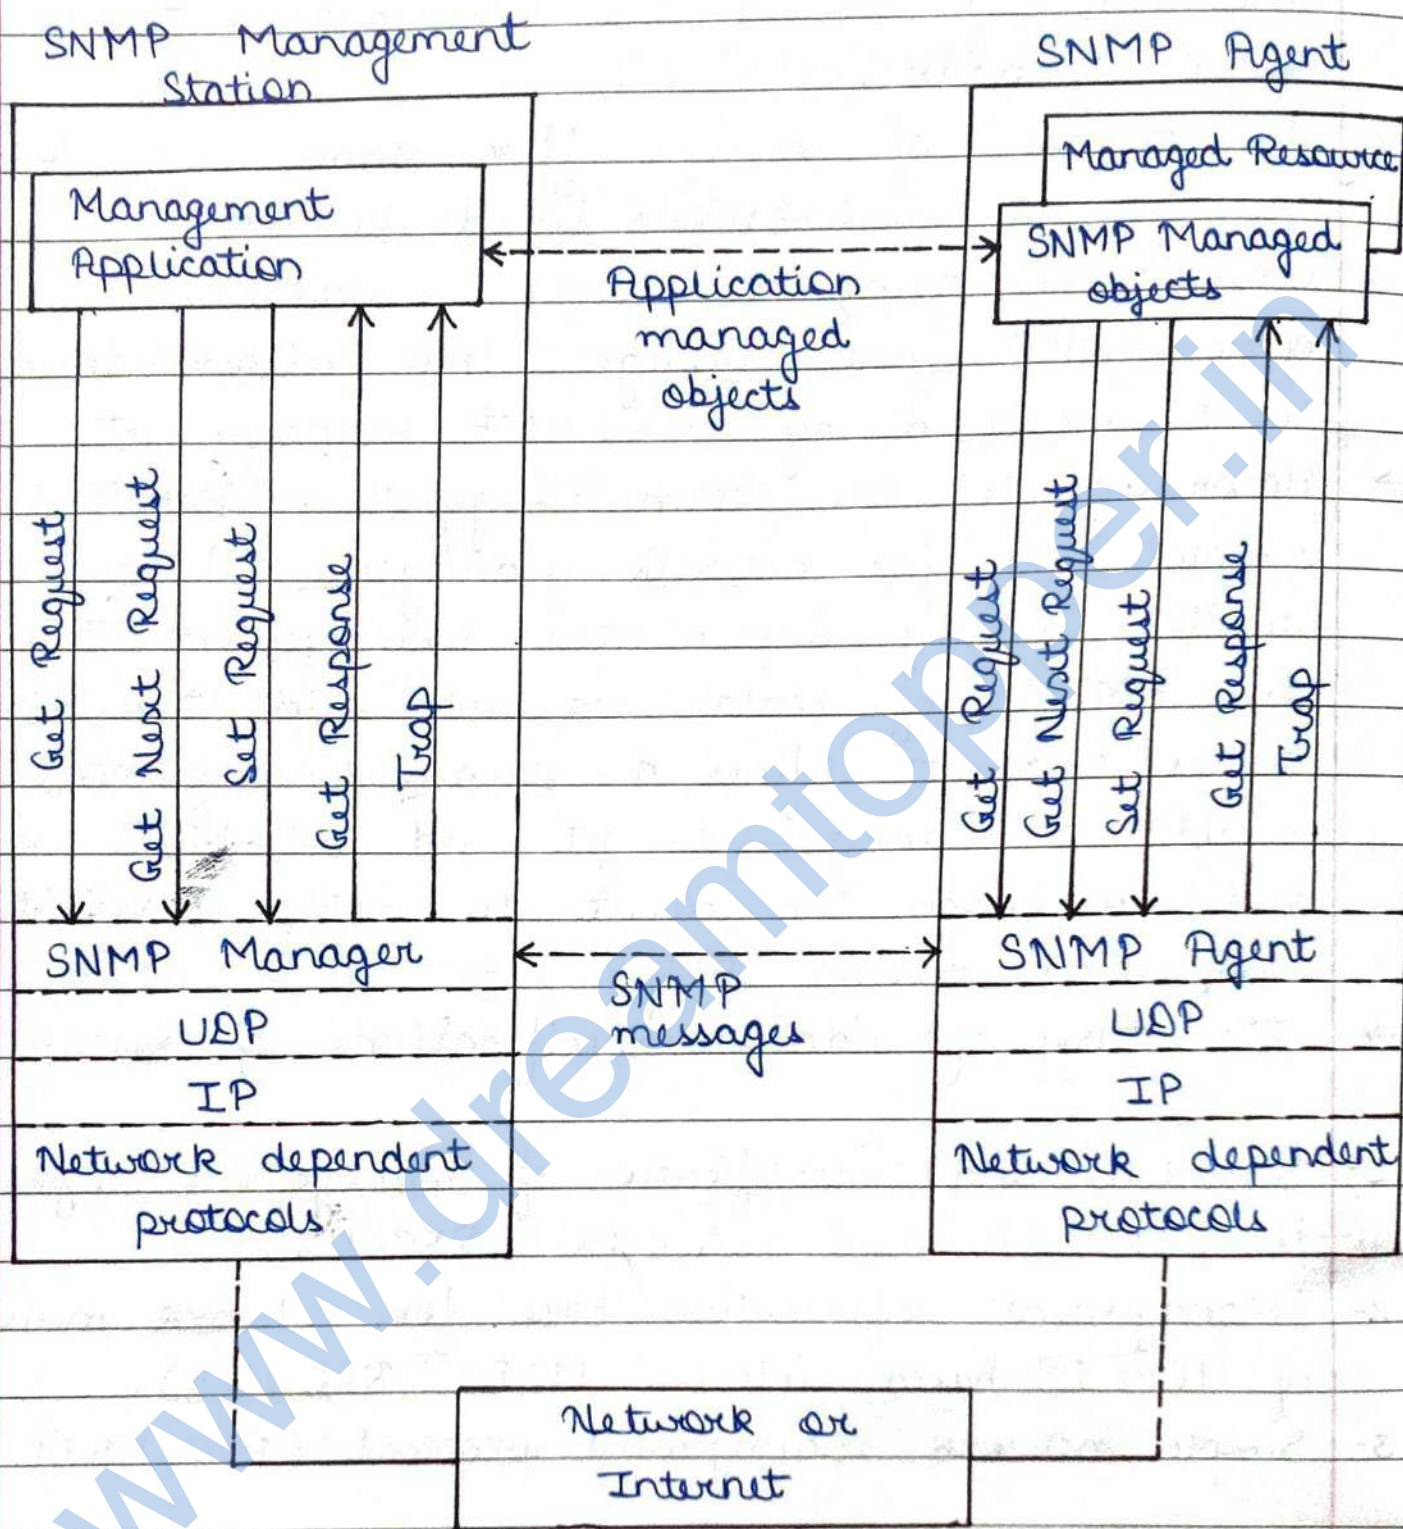 SNMP Management
Station
SNMP Agent
Management
Application
Managed Resource
SNMP Managed
objects
Application
managed
objects
Get Request
Get Next Request
Set Request
Get Response
Trap
Get Request
Get Next Request
Set Request
Get Response
Trap
SNMP Manager
UDP
IP
Network dependent
protocols
SNMP
messages
SNMP Agent
UDP
IP
Network dependent
protocols
Network or
Internet
www.dreamtopper.in